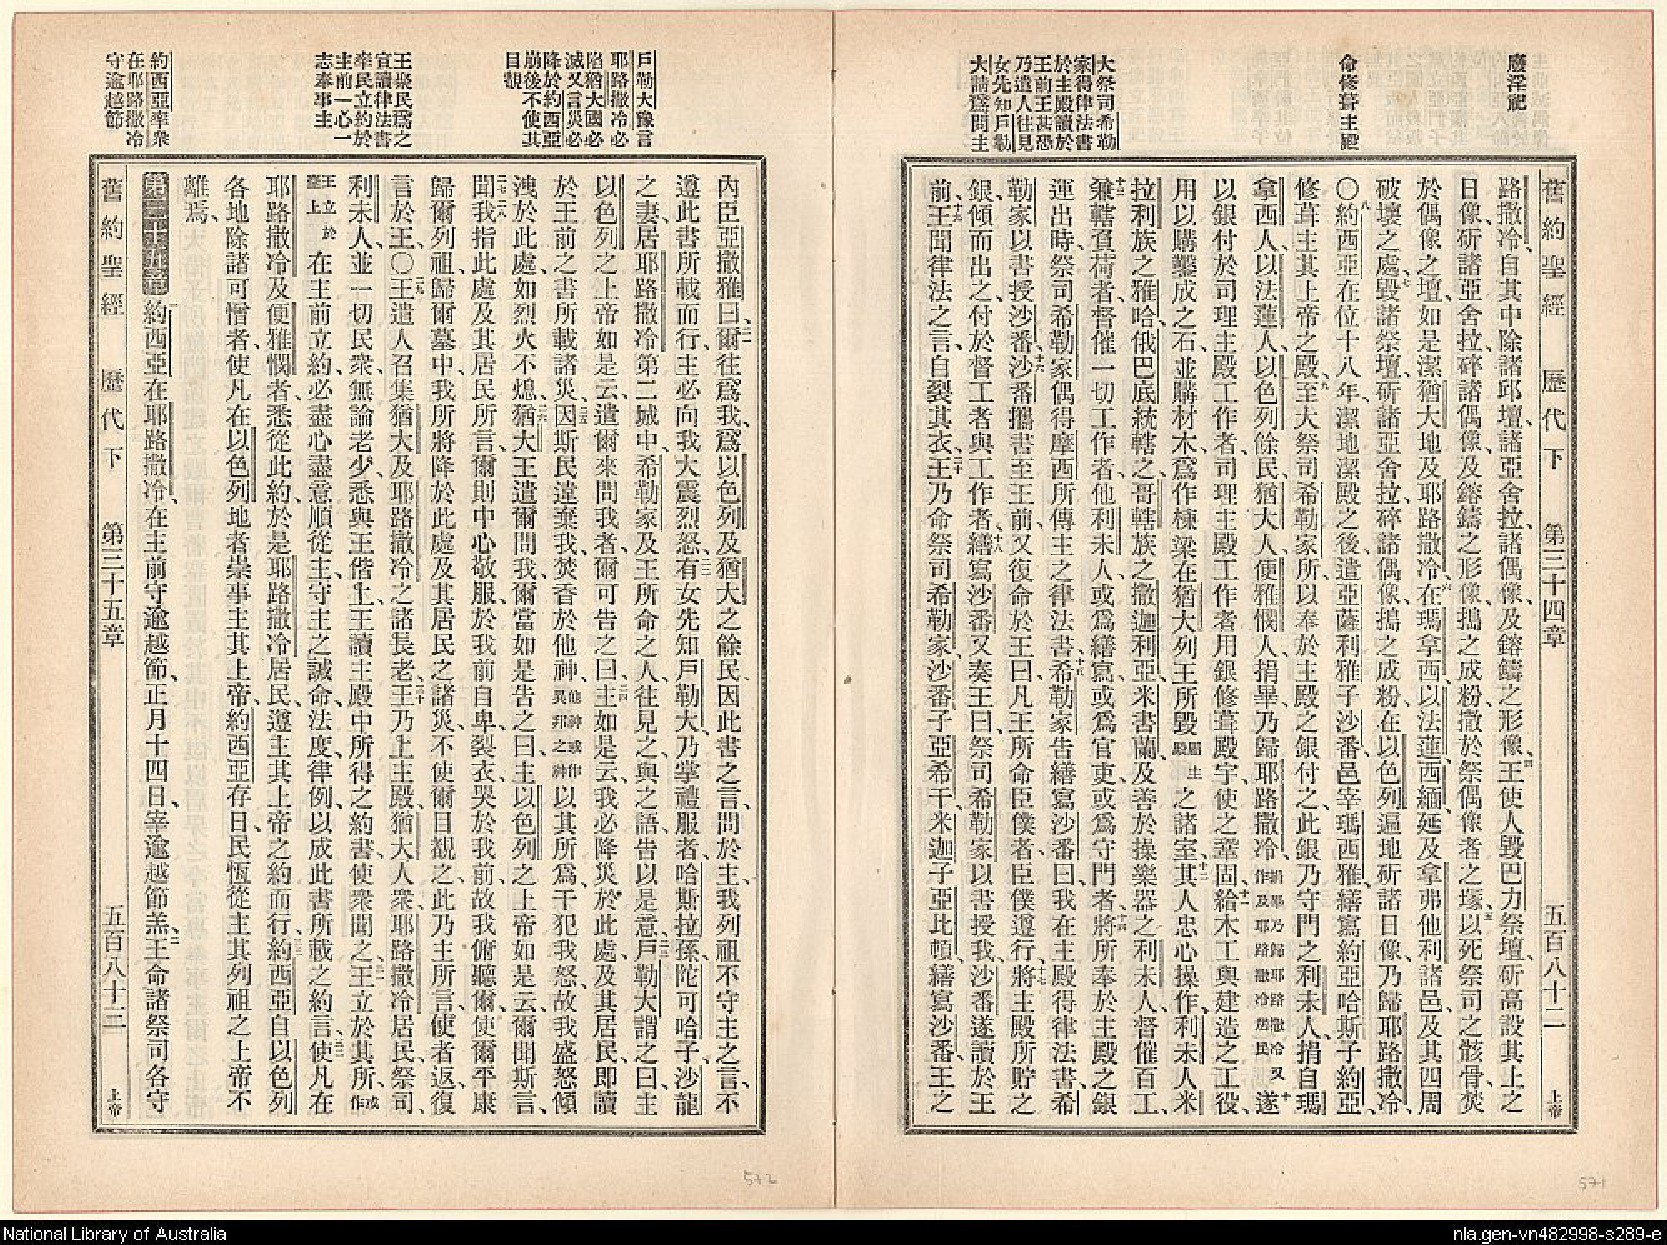 廢淫祀
命修葺主殿
大祭司希勒
家得律法書
於主殿讀於
王前王甚恐
乃遣人往見
女先知戶勒
大請爲問主
舊約聖經 歷代下 第三十四章 五百八十二 上帝
路撒冷、自其中除諸邱壇、諸亞舍拉、諸偶像、及鎔鑄之形像、四王使人毀巴力祭壇、斫高設其上之
日像、斫諸亞舍拉、碎諸偶像、及鎔鑄之形像、搗之成粉、撒於祭偶像者之塚、五以死祭司之骸骨焚
於偶像之壇、如是潔猶大地及耶路撒冷、六在瑪拿西、以法蓮、西緬、延及拿弗他利諸邑、及其四周
破壞之處、七毀諸祭壇、斫諸亞舍拉、碎諸偶像、搗之成粉、在以色列遍地斫諸日像、乃歸耶路撒冷、
〇八約西亞在位十八年、潔地潔殿之後、遣亞薩利雅子沙番、邑宰瑪西雅、繕寫約亞哈斯子約亞、
修葺主其上帝之殿、九至大祭司希勒家所、以奉於主殿之銀付之、此銀乃守門之利未人、捐自瑪
拿西人、以法蓮人、以色列餘民、猶大人、便雅憫人、捐畢、乃歸耶路撒冷、捐畢乃歸耶路撒冷又作及耶路撒冷居民十遂
以銀付於司理主殿工作者、司理主殿工作者用銀修葺殿宇、使之鞏固、十一給木工與建造之工役、
用以購鑿成之石、並購材木、爲作棟梁、在猶大列王所毀屬主殿之諸室、十二其人忠心操作、利未人米
拉利族之雅哈、俄巴底統轄之、哥轄族之撒迦利亞、米書蘭、及善於操樂器之利未人、督催百工、
十三兼轄負荷者、督催一切工作者、他利未人、或爲繕寫、或爲官吏、或爲守門者、十四將所奉於主殿之銀
運出時、祭司希勒家偶得摩西所傳主之律法書、十五希勒家告繕寫沙番曰、我在主殿得律法書、希
勒家以書授沙番、十六沙番攜書至王前、又復命於王曰、凡王所命臣僕者、臣僕遵行、十七將主殿所貯之
銀、傾而出之、付於督工者與工作者、十八繕寫沙番又奏王曰、祭司希勒家以書授我、沙番遂讀於王
前、十九王聞律法之言、自裂其衣、二十王乃命祭司希勒家、沙番子亞希干、米迦子亞比頓、繕寫沙番、王之
戶勒大豫言
耶路撒冷必
陷猶大國必
滅又言災必
降於約西亞
崩後不使其
目覩
王聚民爲之
宣讀律法書
率民立約於
主前一心一
志奉事主
約西亞率衆
在耶路撒冷
守逾越節
內臣亞撒雅曰、二一爾往爲我、爲以色列及猶大之餘民、因此書之言、問於主、我列祖不守主之言、不
遵此書所載而行、主必向我大震烈怒、二二有女先知戶勒大、乃掌禮服者哈斯拉孫陀可哈子沙龍
之妻、居耶路撒冷第二城中、希勒家及王所命之人、往見之、與之語、告以是意、二三戶勒大謂之曰、主
以色列之上帝如是云、遣爾來問我者、爾可告之曰、二四主如是云、我必降災於此處、及其居民、即讀
於王前之書所載諸災、二五因斯民違棄我、焚香於他神他神或作異邦之神以其所爲干犯我怒、故我盛怒傾
洩於此處、如烈火不熄、二六猶大王遣爾問我、爾當如是告之曰、主以色列之上帝如是云、爾聞斯言、
二七聞我指此處及其居民所言、爾則中心敬服、於我前自卑、裂衣、哭於我前、故我俯聽爾、二八使爾平康
歸爾列祖、歸爾墓中、我所將降於此處及其居民之諸災、不使爾目覩之、此乃主所言、使者返、復
言於王、〇二九王遣人召集猶大及耶路撒冷之諸長老、三十王乃上主殿、猶大人衆、耶路撒冷居民、祭司、
利未人、並一切民衆、無論老少、悉與王偕上、王讀主殿中所得之約書、使衆聞之、三一王立於其所、或作
王立於臺上在主前立約、必盡心盡意順從主、守主之誡命、法度、律例、以成此書所載之約言、三二使凡在
耶路撒冷及便雅憫者、悉從此約、於是耶路撒冷居民、遵主其上帝之約而行、三三約西亞自以色列
各地除諸可憎者、使凡在以色列地者、崇事主其上帝、約西亞存日、民恆從主其列祖之上帝不
離焉、
第三十五章 約西亞在耶路撒冷、在主前守逾越節、正月十四日、宰逾越節羔、二王命諸祭司各守
舊約聖經 歷代下 第三十五章 五百八十三 上帝
572
571
National Library of Australia
nla.gen-vn482998-s289-e